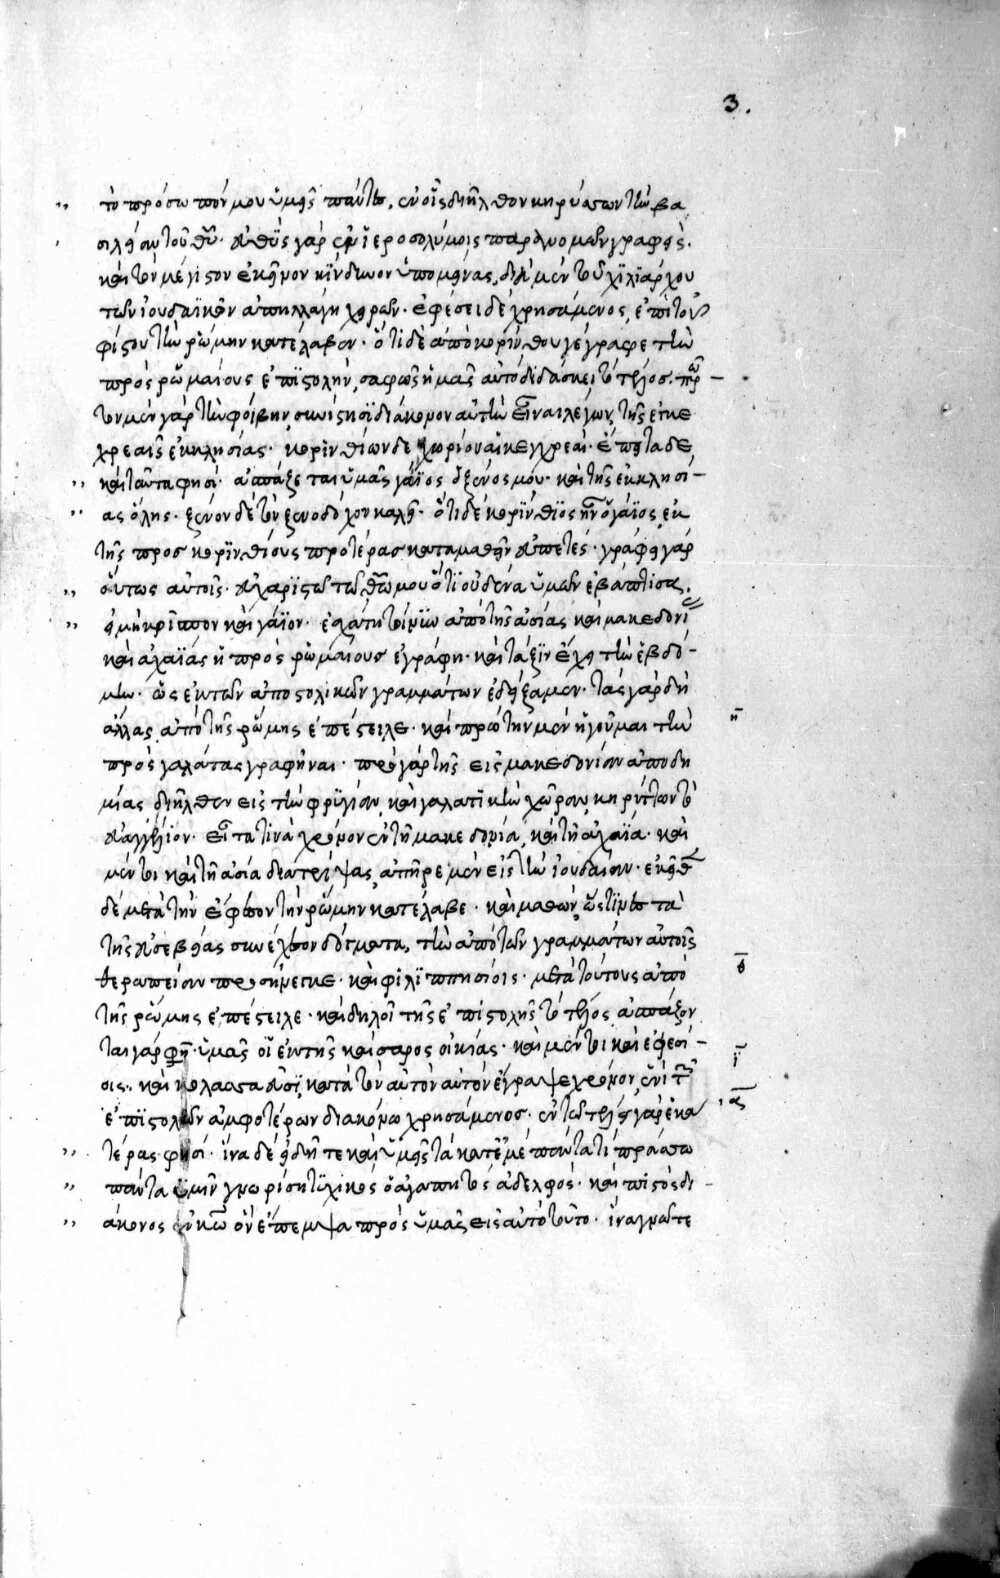 3.
τὸ πρόσωπόν μου ὑμεῖς πάντες, ἐν οἷς διῆλθον κηρύσσων τὴν βα
σιλείαν τοῦ θῦ. εὐθὺς γὰρ ἐν ἱεροσολύμοις παραγενόμενον γραφεὶς.
καὶ τὸν μέγιστον ἐκεῖνον κίνδυνον ὑπομείνας, διὰ μὲν τοῦ χιλιάρχου
τῶν ἰουδαϊκῶν ἀπηλλάγη χειρῶν. ἐφέσει δὲ χρησάμενος, ἐπὶ τοῦ
φίστου τὴν ῥώμην κατέλαβεν. ὅτι δὲ ἀπὸ κορίνθου γέγραφε τὴν
πρὸς ῥωμαίους ἐπιστολὴν, σαφῶς ἡμᾶς αὐτὸ διδάσκει τὸ τέλος. πρῶ
τον μὲν γὰρ τὴν φοίβην, συνίστησι διάκονον αὐτὴν εἶναι λέγων, τῆς ἐν κε
χρεαῖς ἐκκλησίας. κορινθίων δὲ χωρίον αἱ κεγχρεαί. ἔπειτα δὲ
καὶ ταῦτα φησί. ἀσπάζεται ὑμᾶς γάϊος ὁ ξένος μου. καὶ τῆς ἐκκλησί
ας ὅλης. ξένον δὲ τὸν ξενοδόχον καλεῖ. ὅτι δὲ κορίνθιος ἦν ὁ γάϊος, ἐκ
τῆς προς κορινθίους προτέρας καταμαθεῖν εὐπετές. γράφει γὰρ
οὕτως αὐτοῖς. εὐχαριστῶ τῶ θῶ μου ὅτι οὐδένα ὑμῶν ἐβάπτισα,
εἰ μὴ κρίσπον καὶ γάϊον. ἐσχάτη τοίνυν ἀπὸ τῆς ἀσίας καὶ μακεδονί
καὶ ἀχαΐας ἡ πρὸς ῥωμαίους ἐγράφη. καὶ τάξιν ἔχει τὴν ἑβδό
μην. ὡς ἐκ τῶν ἀποστολικῶν γραμμάτων ἐδείξαμεν. τὰς γὰρ δὴ
ἄλλας ἀπὸ τῆς ῥώμης ἐπέστειλε. καὶ πρώτην μὲν ἡγοῦμαι τὴν
η
πρὸς γαλάτας γραφῆναι. πρὸ γὰρ τῆς εἰς μακεδονίαν ἀποδη
μίας διῆλθεν εἰς τὴν φρυγίαν, καὶ γαλατικὴν χώραν, κηρύττων τὸ
εὐαγγέλιον. εἶτα τινὰ χρόνον ἐν τῆ μακεδονία, καὶ τῆ ἀχαΐα. καὶ
μέν τοι καὶ τῆ ἀσία διατρίψας, ἀπῆρε μὲν εἰς τὴν ἰουδαίαν. ἐκεῖθ
δὲ μετὰ τὴν ἔφεσον τὴν ῥώμην κατέλαβε. καὶ μαθὼν, ὥς τινες τὰ
τῆς εὐσεβείας συνέχεον δόγματα, τὴν ἀπὸ τῶν γραμμάτων αὐτοῖς
θεραπείαν προσήνεγκε. καὶ φιλιππησίοις. μετὰ τούτους ἀπὸ
θ
τῆς ῥώμης ἐπέστειλε. καὶ δηλοῖ τῆς ἐπιστολῆς τὸ τέλος. ἀσπάζον
ται γάρ φησιν ὑμᾶς οἱ ἐκ τῆς καίσαρος οἰκίας. καὶ μέν τοι καὶ ἐφεσί
ι
οις. καὶ κολασσαεῦσι, κατὰ τὸν αὐτὸν αὐτὸν ἔγραψε χρόνον, ἑνὶ τῶ
ια
ἐπιστολῶν ἀμφοτέρων διακόνω χρησάμενος. ἐν τῶ τέλει γὰρ ἑκα
τέρας φησί. ἵνα δὲ εἰδῆτε καὶ ὑμεῖς τὰ κατ ἐμὲ πάντα τί πράσσω
πάντα ὑμῖν γνωρίσει τύχικος ὁ ἀγαπητὸς ἀδελφός. καὶ πιστὸς δι
άκονος ἐν κῶ ὃν ἔπεμψα πρὸς ὑμᾶς εἰς αὐτὸ τοῦτο. ἵνα γνῶτε